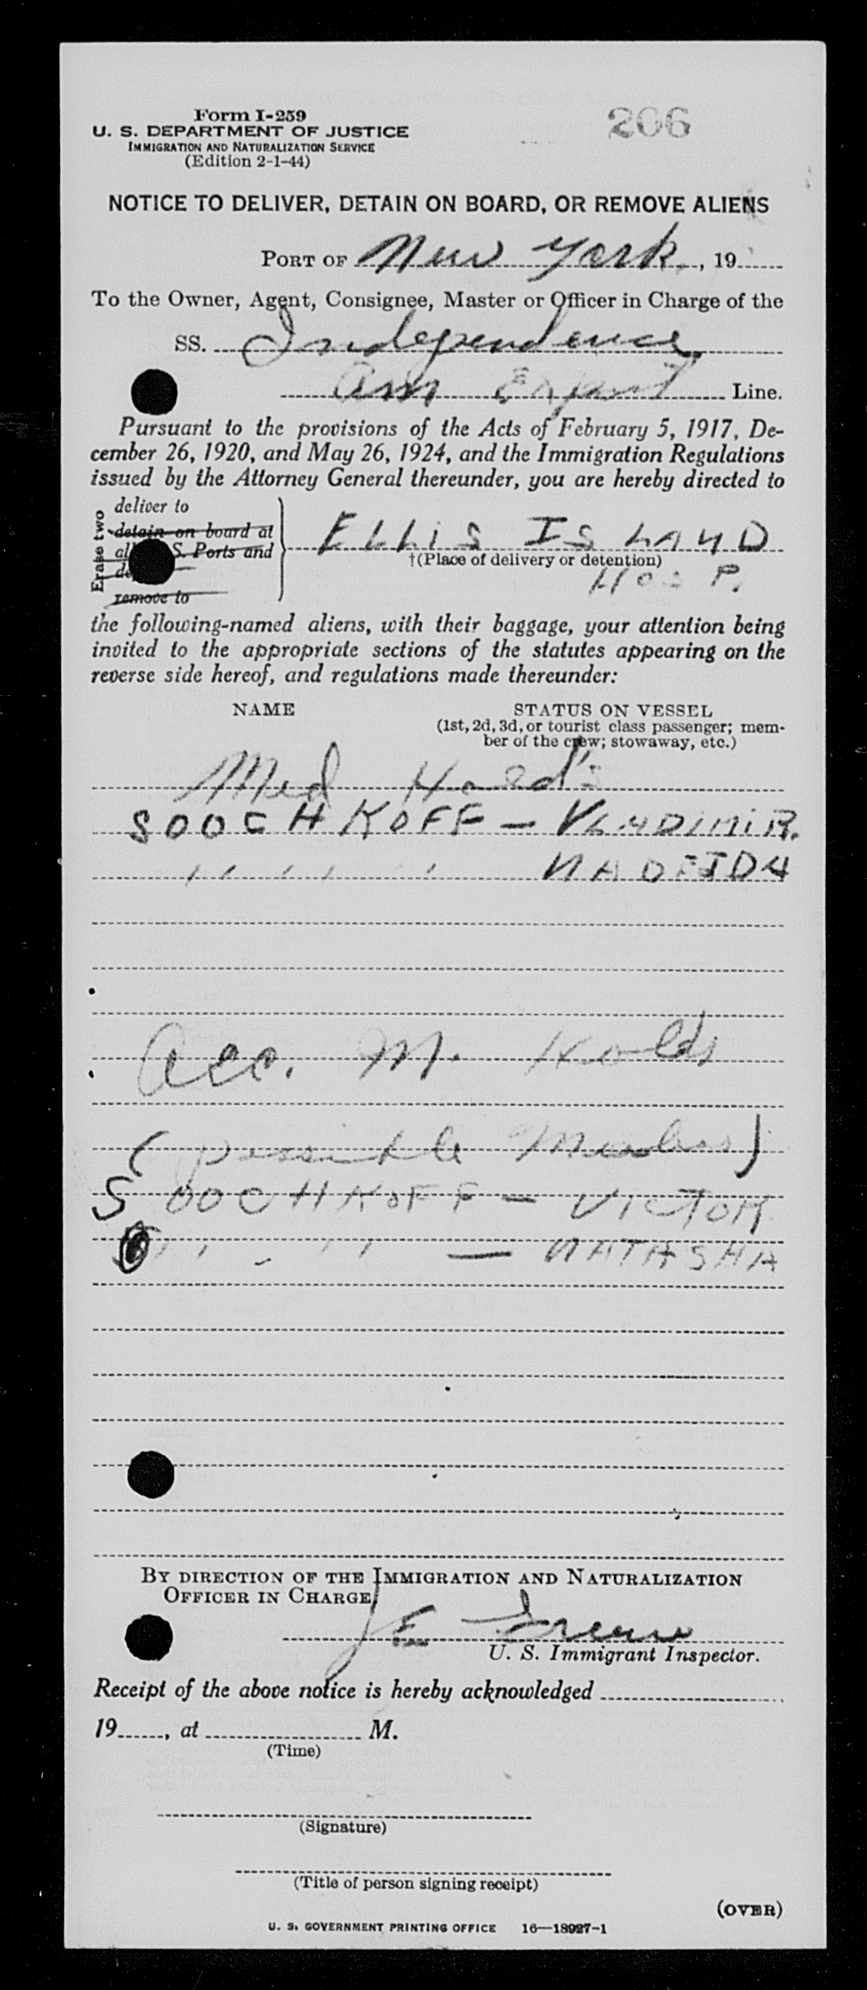 Form I-259
206
U. S. DEPARTMENT OF JUSTICE
IMMIGRATION AND NATURALIZATION SERVICE
(Edition 2-1-44)
NOTICE TO DELIVER, DETAIN ON BOARD, OR REMOVE ALIENS
PORT OF New York, 19
To the Owner, Agent, Consignee, Master or Officer in Charge of the
SS. Independence
Am Export Line.
Pursuant to the provisions of the Acts of February 5, 1917, De-
cember 26, 1920, and May 26, 1924, and the Immigration Regulations
issued by the Attorney General thereunder, you are hereby directed to
Erase two
deliver to
detain on board at
S. Ports and
remove to
ELLIS ISLAND
†(Place of delivery or detention)
HOSP.
the following-named aliens, with their baggage, your attention being
invited to the appropriate sections of the statutes appearing on the
reverse side hereof, and regulations made thereunder:
NAME
STATUS ON VESSEL
(1st, 2d, 3d, or tourist class passenger; mem-
ber of the crew; stowaway, etc.)
Med Hold's
SOOCHKOFF - VLADIMIR.
" " " NADEJDA
Acc. M. Holds
(possible Measles)
SOOCHKOFF - VICTOR
" " - NATASHA
BY DIRECTION OF THE IMMIGRATION AND NATURALIZATION
OFFICER IN CHARGE
J E
U. S. Immigrant Inspector.
Receipt of the above notice is hereby acknowledged
19, at M.
(Time)
(Signature)
(Title of person signing receipt)
(OVER)
U. S. GOVERNMENT PRINTING OFFICE 16—18927-1